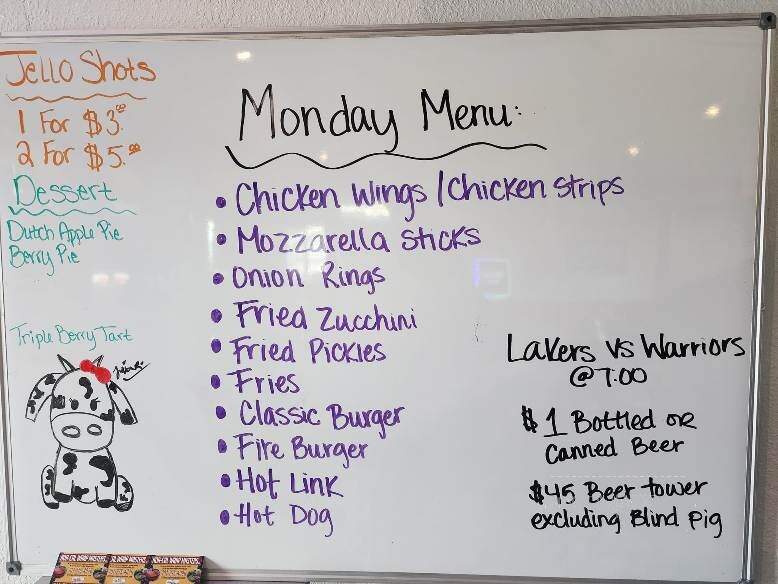 Jello Shots
1 For $3.00
2 For $5.00
Dessert
Dutch Apple Pie
Berry Pie
Triple Berry Tart
Monday Menu:
• Chicken Wings / Chicken Strips
• Mozzarella Sticks
• Onion Rings
• Fried Zucchini
• Fried Pickles
• Fries
• Classic Burger
• Fire Burger
• Hot Link
• Hot Dog
Lakers vs Warriors
@7:00
$1 Bottled or
Canned Beer
$45 Beer tower
excluding Blind Pig